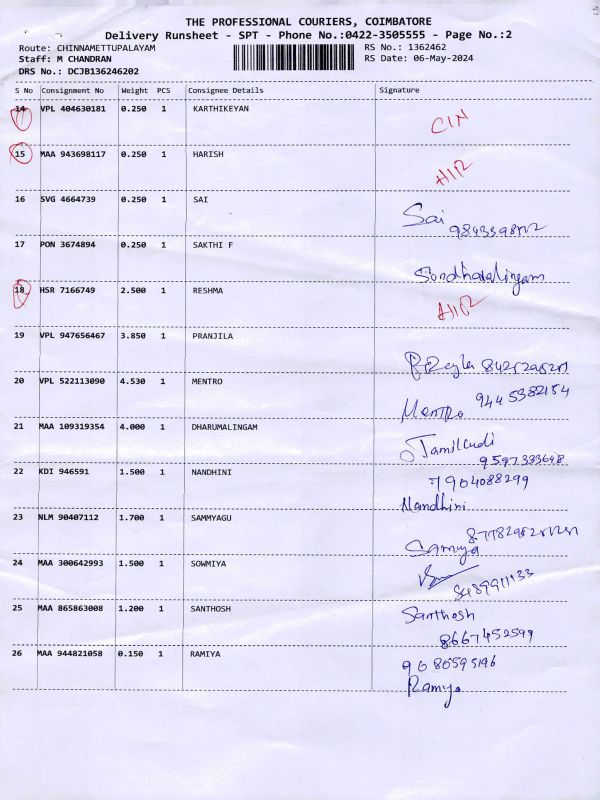 THE PROFESSIONAL COURIERS, COIMBATORE
Delivery Runsheet - SPT - Phone No.:0422-3505555 - Page No.:2
Route: CHINNAMETTUPALAYAM RS No.: 1362462
Staff: M CHANDRAN RS Date: 06-May-2024
DRS No.: DCJB136246202
S No Consignment No Weight PCS Consignee Details Signature
14 VPL 404630181 0.250 1 KARTHIKEYAN
CIN
15 MAA 943698117 0.250 1 HARISH
16 SVG 4664739 0.250 1 SAI
Sai
17 PON 3674894 0.250 1 SAKTHI F
18 HSR 7166749 2.500 1 RESHMA
19 VPL 947656467 3.850 1 PRANJILA
20 VPL 522113090 4.530 1 MENTRO
9445382154
Mentro
21 MAA 109319354 4.000 1 DHARUMALINGAM
9597333648
22 KDI 946591 1.500 1 NANDHINI
7904088299
Nandhini
23 NLM 90407112 1.700 1 SAMMYAGU
24 MAA 300642993 1.500 1 SOWMIYA
25 MAA 865863008 1.200 1 SANTHOSH
Santhosh
8667452599
26 MAA 944821058 0.150 1 RAMIYA
9080595196
Ramya